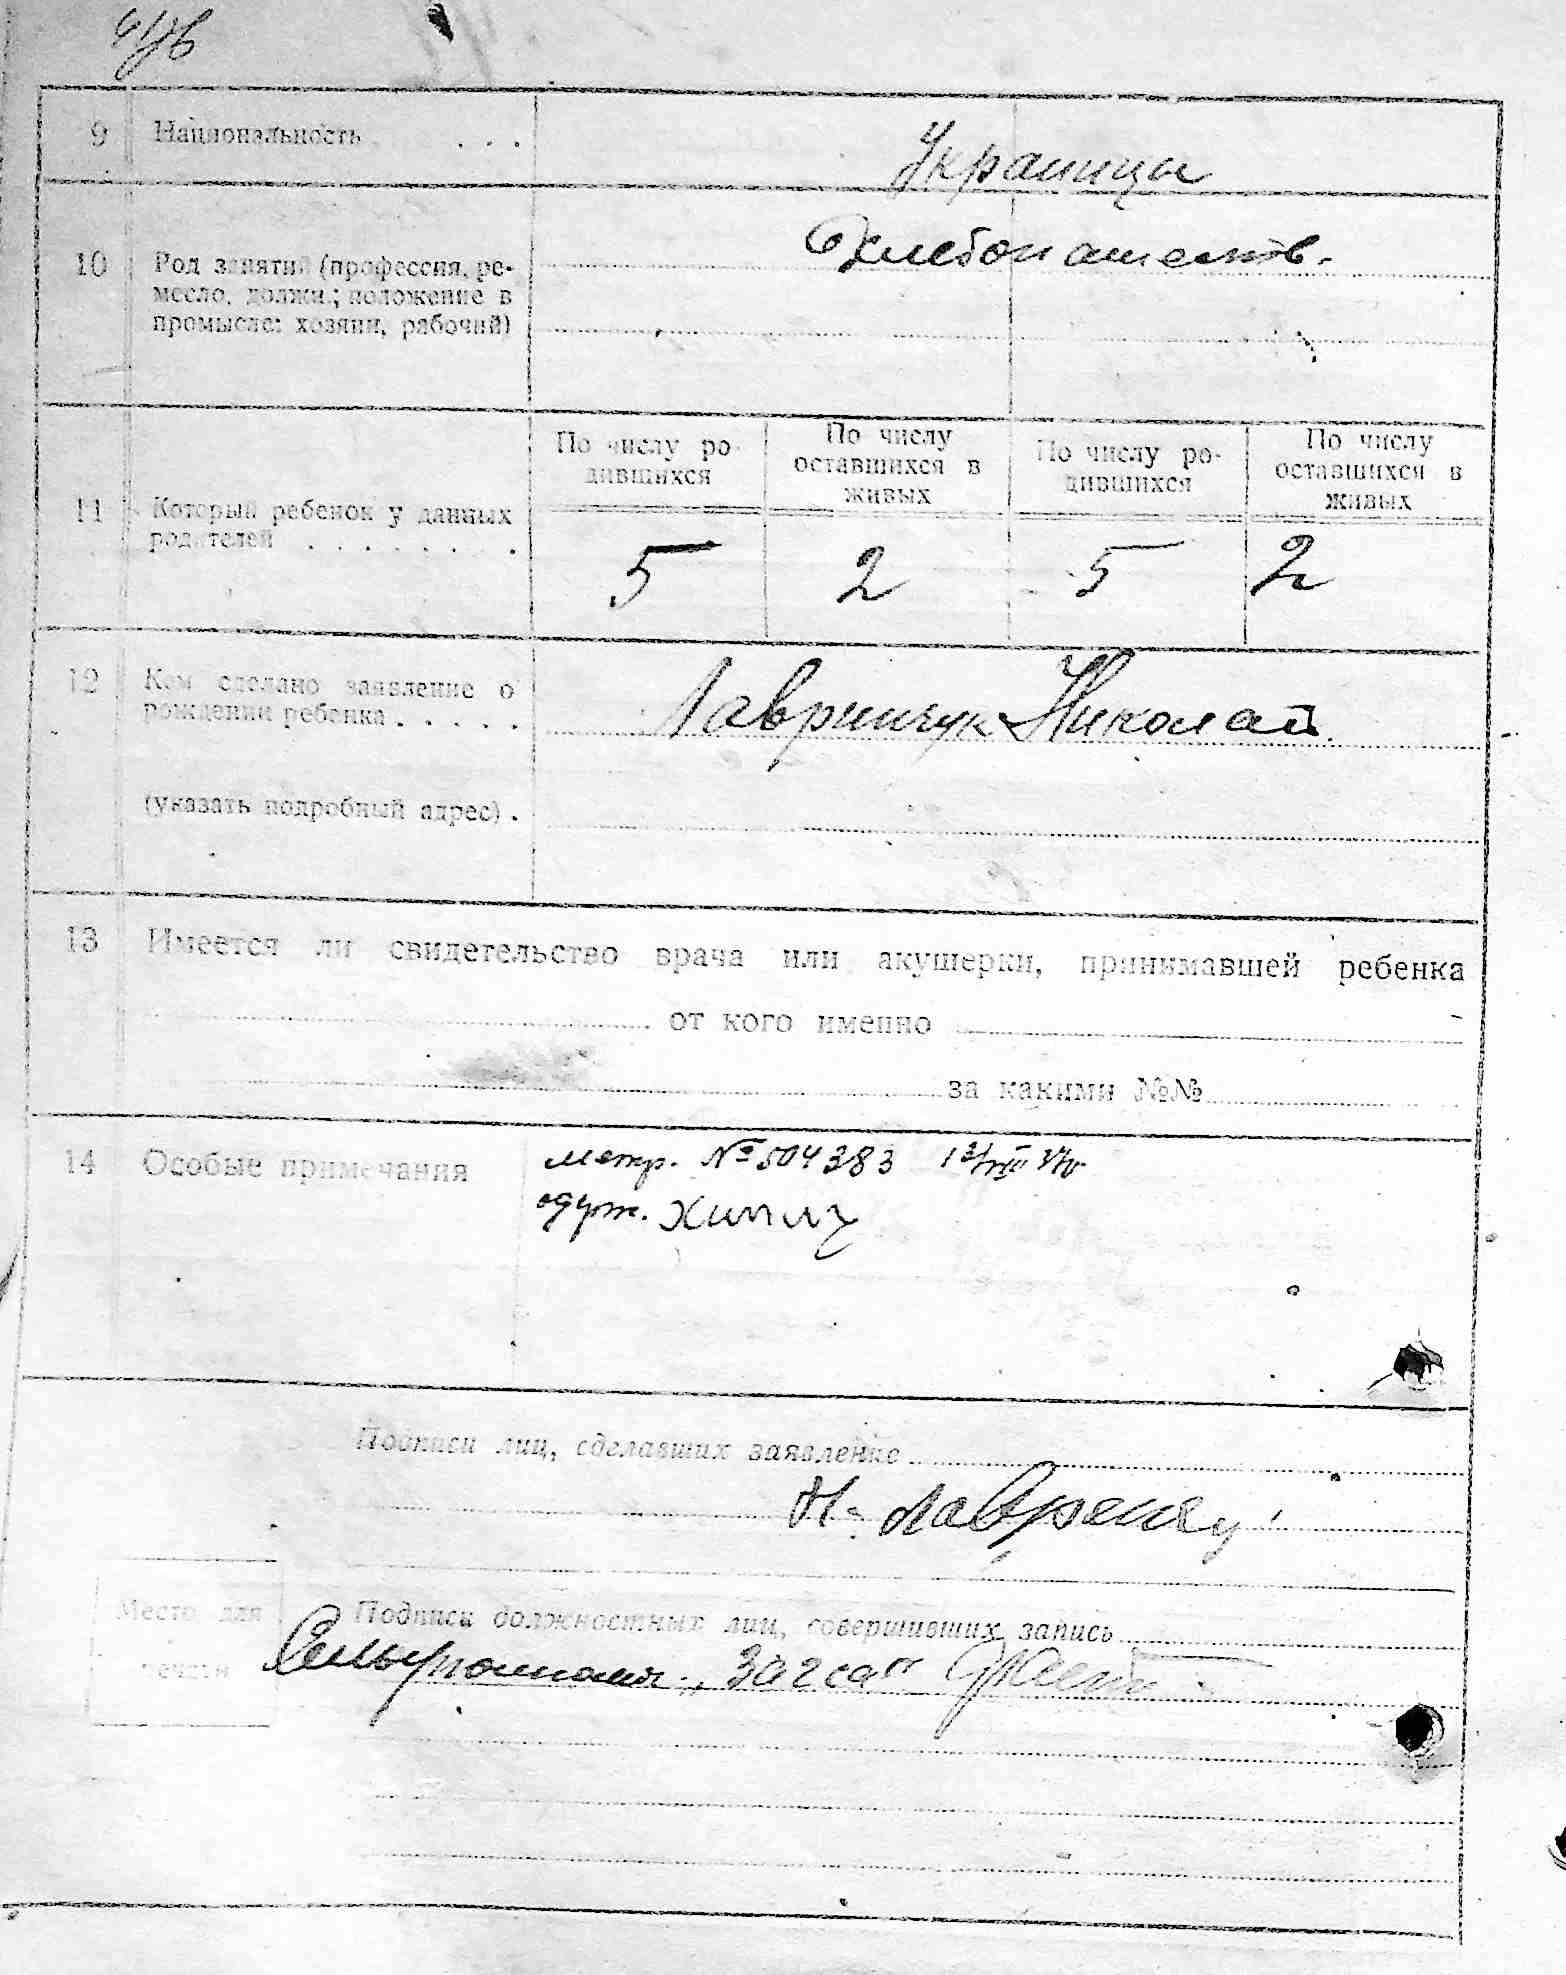 9 Национальность . . . Украинцы
10 Род занятий (профессия, ре-
месло, должн.; положение в
промысле: хозяин, рабочий)
Хлебопашество.
По числу ро-
дившихся
По числу
оставшихся в
живых
По числу ро-
дившихся
По числу
оставшихся в
живых
11 Который ребенок у данных
родителей . . . . . . . .
5 2 5 2
12 Кем сделано заявление о
рождении ребенка . . . . .
Лавринчук Николай
(указать подробный адрес) .
13 Имеется ли свидетельство врача или акушерки, принимавшей ребенка
от кого именно
за какими №№
14 Особые примечания
метр. № 504383 13/VIII
одерж.
Подписи лиц, сделавших заявление
Н.
Место для
печати
Подписи должностных лиц, совершивших запись
„Загса"